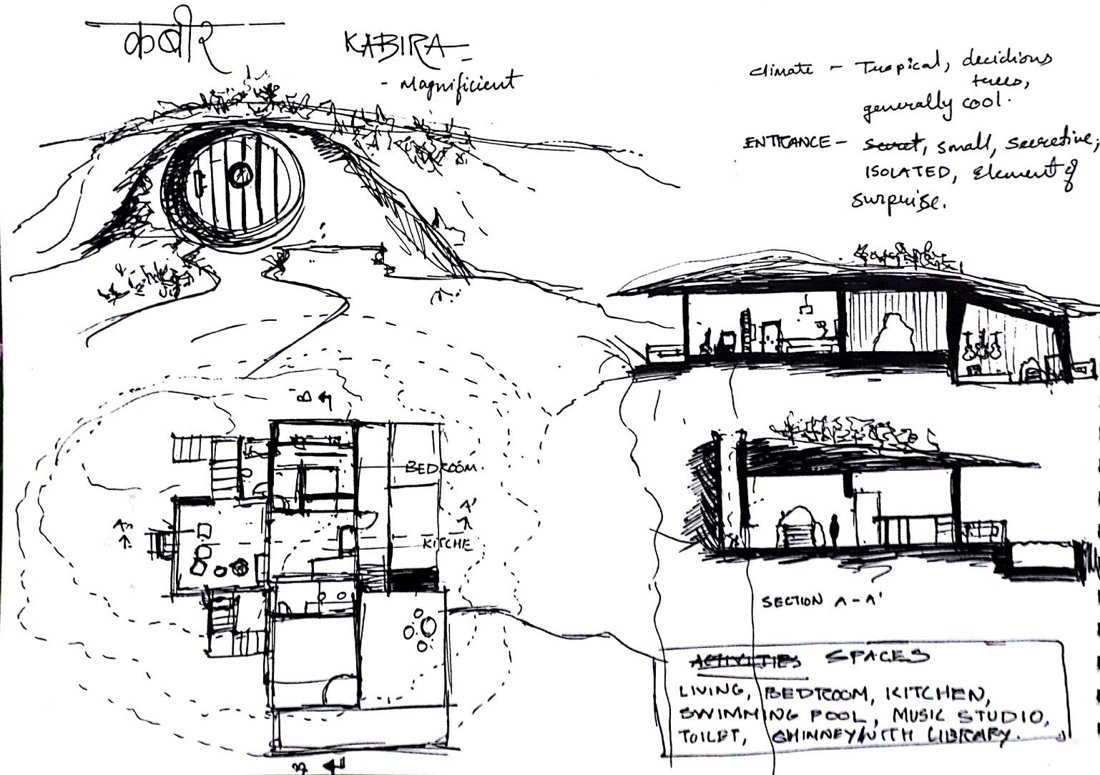 कबीर
KABIRA
- Magnificient
Climate - Tropical, decidious
trees,
generally cool.
ENTRANCE - secret, small, secretive,
ISOLATED, Element of
surprise.
B
BEDROOM
A
A'
KITCHE
B
SECTION A-A'
ACTIVITIES SPACES
LIVING, BEDROOM, KITCHEN,
SWIMMING POOL, MUSIC STUDIO,
TOILET, CHIMNEY WITH LIBRARY.